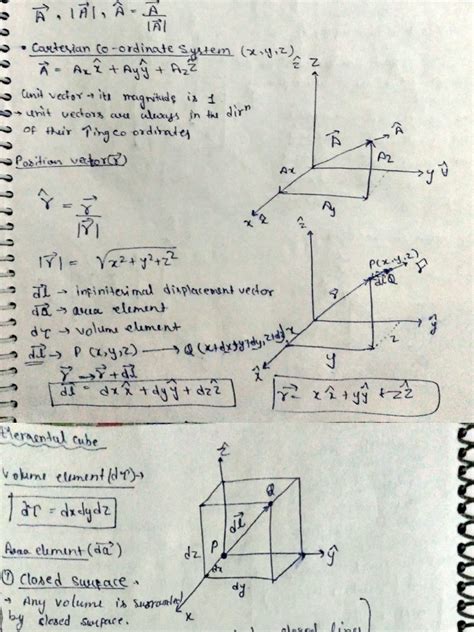 A⃗ , |A⃗| , Â = A⃗ / |A⃗|
• Cartesian Co-ordinate System (x,y,z)
A⃗ = Ax x̂ + Ay ŷ + Az ẑ
Unit vector → its magnitude is 1
→ unit vectors are always in the dirⁿ
of their ↑ing coordinates
ẑ Z
A⃗ Â
Ax Az
y ŷ
x x̂ Ay
Position vector(r⃗)
r̂ = r⃗ / |r⃗|
|r⃗| = √x²+y²+z²
d⃗l → infinitesimal displacement vector
d⃗a → area element
dτ → volume element
d⃗l → P (x,y,z) ⟶ Q(x+dx, y+dy, z+dz)
r⃗ → r⃗ + d⃗l
d⃗l = dx x̂ + dy ŷ + dz ẑ
ẑ
P(x,y,z)
d⃗l Q
r
x
ŷ
y z
x̂
r⃗ = x x̂ + y ŷ + z ẑ
Elemental cube
Volume element (dτ)→
dτ = dxdydz
Area element (d⃗a)
① Closed surface.
→ Any volume is surrounded
by closed surface.
ẑ
Q
d⃗l
P
dz dx
dy
ŷ
x
closed line